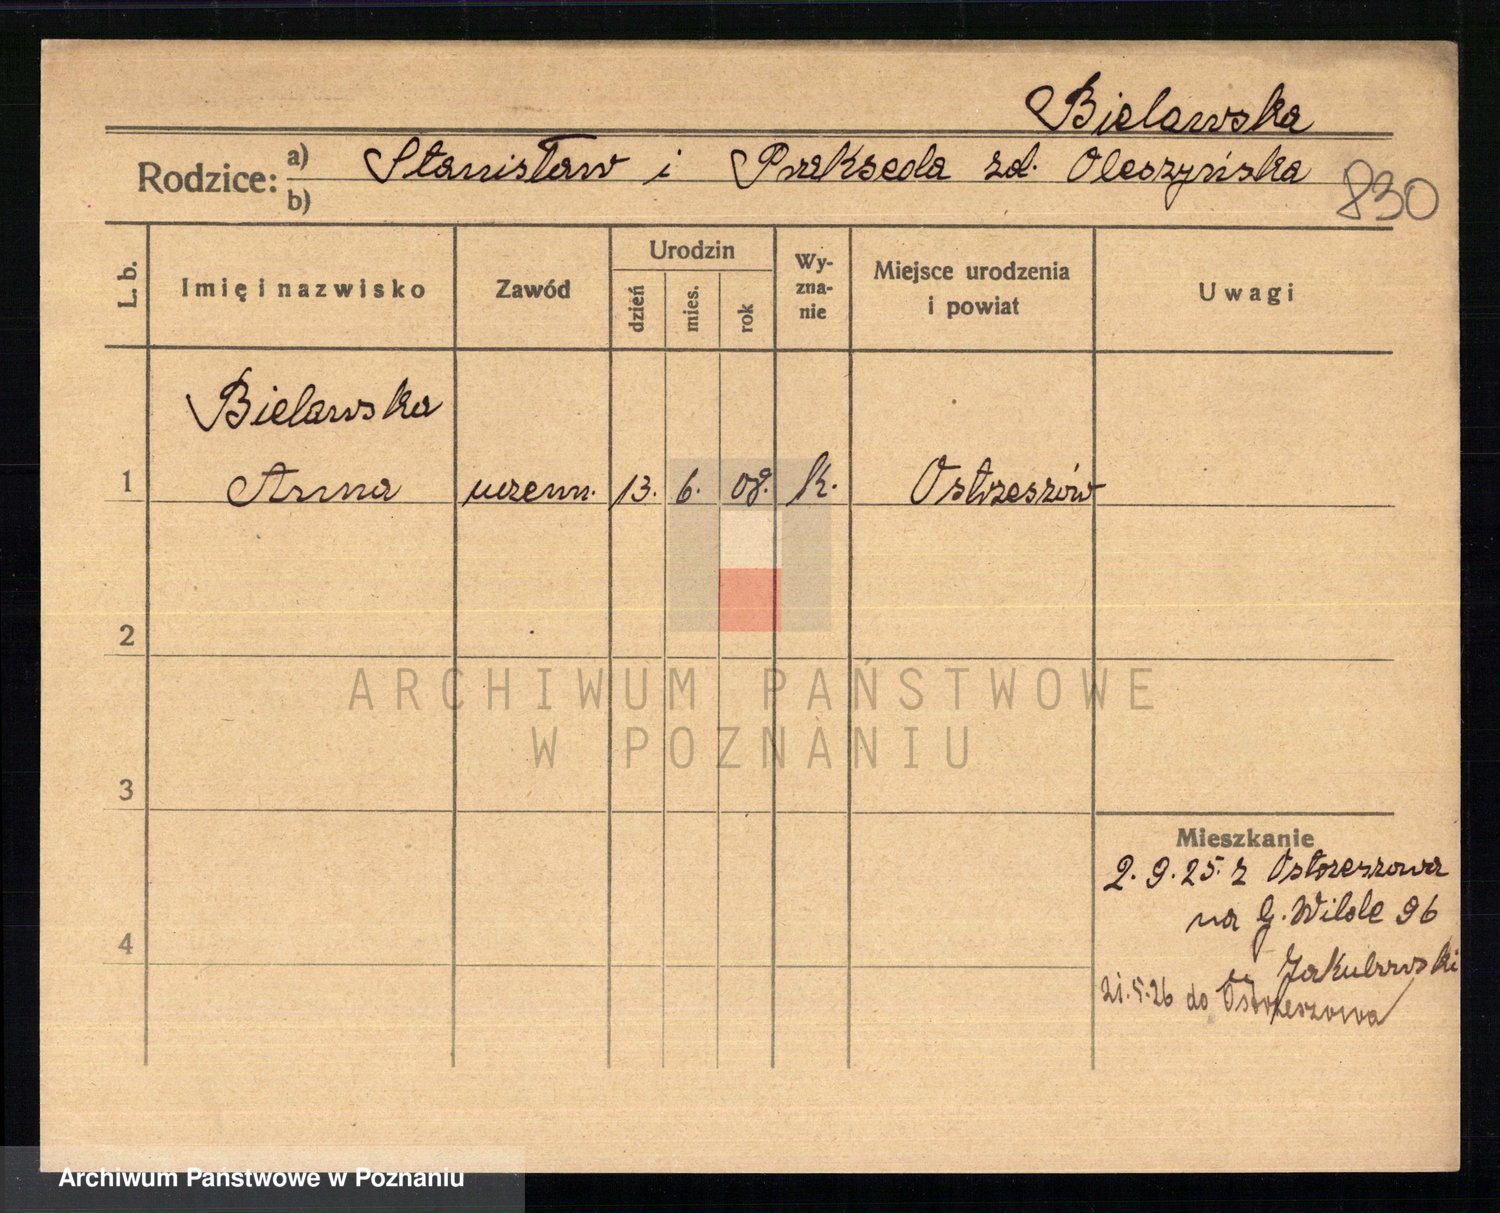 Bielawska
Rodzice: a) Stanisław i Prakseda zd. Oleszyńska
b)
830
L. b. Imię i nazwisko Zawód Urodzin dzień mies. rok Wyznanie Miejsce urodzenia i powiat Uwagi
Bielawska
1 Anna uczenn. 13. 6. 08. k. Ostrzeszów
2
ARCHIWUM PAŃSTWOWE
W POZNANIU
3
Mieszkanie
2.9.25. z Ostrzeszowa
na G. Wilde 96
4
Jakubowski
21.5.26 do Ostrzeszowa
Archiwum Państwowe w Poznaniu